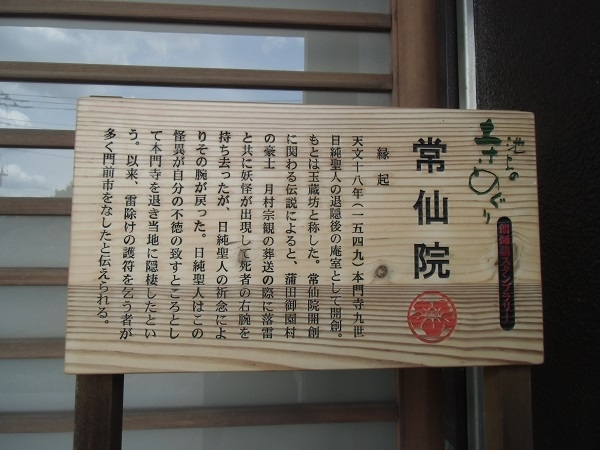 池上の
寺めぐり
常仙院
縁起
天文十八年(一五四九)本門寺九世
日純聖人の退隠後の庵室として開創。
もとは玉蔵坊と称した。常仙院開創
に関わる伝説によると、蒲田御園村
の豪士 月村宗観の葬送の際に落雷
と共に妖怪が出現して死者の右腕を
持ち去ったが、日純聖人の祈念によ
りその腕が戻った。日純聖人はこの
怪異が自分の不徳の致すところとし
て本門寺を退き当地に隠棲したとい
う。以来、雷除けの護符を乞う者が
多く門前市をなしたと伝えられる。